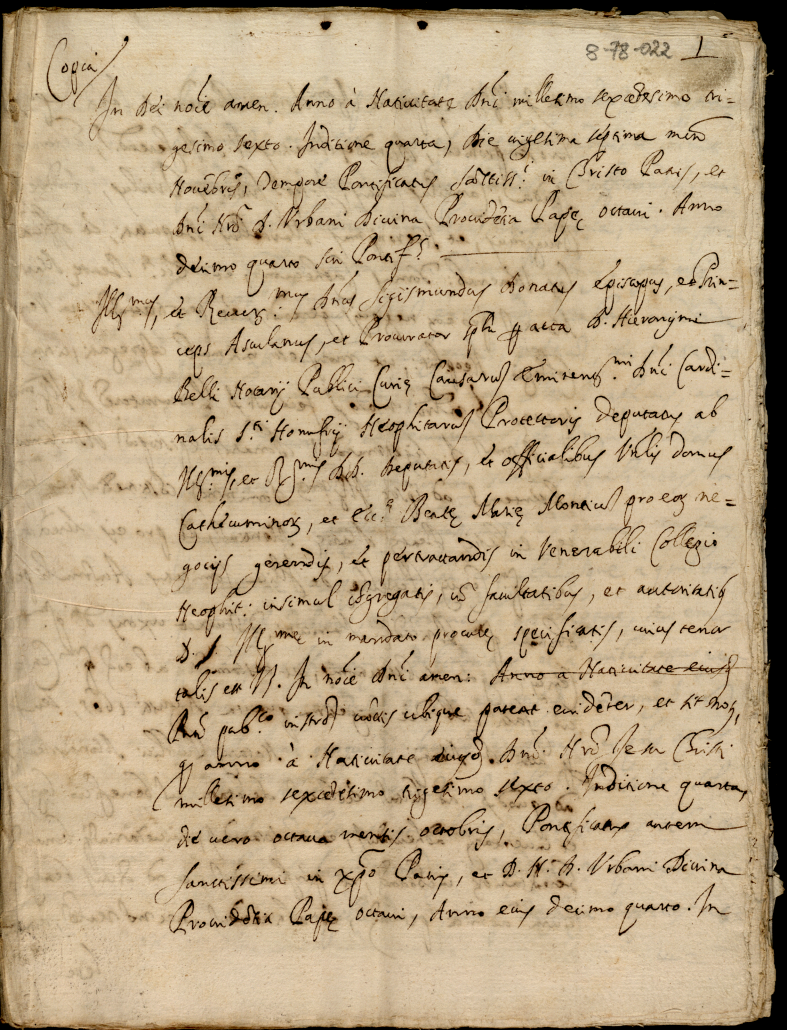 8-78-022 1
Copia
In Dei noie amen. Anno à Nativitate Dni millesimo sexcetesimo tri=
gesimo sexto. Inditione quarta, Die vigesima septima men
Novebris, Tempore Pontificatus in Christo Patris, et
Dni Nri D. Urbani Divina Providetia Pape octavi. Anno
decimo quarto sui Pontif.s
Ill.mus, et Reverg.mus Dnus Sigismundus Donatus Episcopus, et Prin=
ceps Asculanus, et Procurator acta D. Hieronymi
Belli Notarij Publici Curię Causarum Dni Cardi=
nalis S.ti Honufrij Neophitarum Protectoris deputatus ab
Ill.mis, et R.mis DD. Deputatis, et officialibus Urbis domus
Cathecuminor, et Beatę Marię Montium pro eor ne=
gocijs gerendis, et pertractandis in Venerabili Collegio
Neophit: insimul cogregatis, facultatibus, et autoritatib
D. Ill.me in mandato procure specificatis, cuius tenor
talis est In noie Dni amen: Anno a Nativitate eiusd
pub.co cuctis ubique pateat evideter, et sit not,
q anno à Nativitate eiusd. Dni Nri Iesu Christi
millesimo sexcetesimo trigesimo sexto. Inditione quarta,
die vero octava mensis octobris, Pontificatus autem
Sanctissimi in xpo Patris, et D. N. D. Urbani Divina
Providetia Papę octavi, Anno eius decimo quarto. In